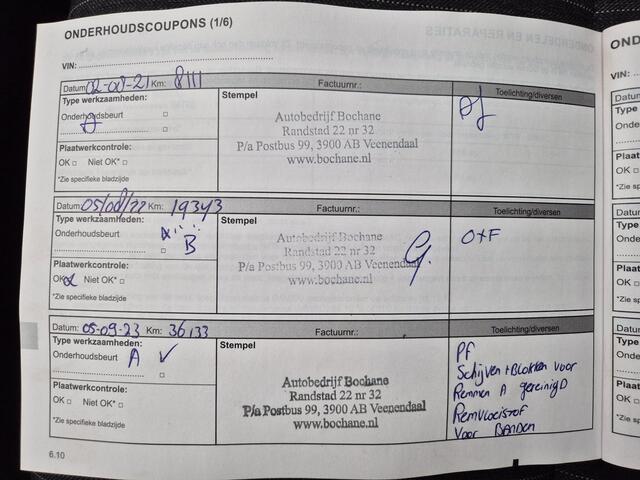 ONDERHOUDSCOUPONS (1/6)
VIN:
Datum: 02-08-21 Km: 8111
Factuurnr.:
Type werkzaamheden:
Stempel
Toelichting/diversen
Onderhoudsbeurt □
A □
Autobedrijf Bochane
Randstad 22 nr 32
P/a Postbus 99, 3900 AB Veenendaal
www.bochane.nl
Plaatwerkcontrole:
OK □ Niet OK* □
*Zie specifieke bladzijde
Datum: 05/08/22 Km: 19343
Factuurnr.:
Type werkzaamheden:
Stempel
Toelichting/diversen
Onderhoudsbeurt
B
Autobedrijf Bochane
Randstad 22 nr 32
P/a Postbus 99, 3900 AB Veenendaal
www.bochane.nl
O+F
Plaatwerkcontrole:
OK Niet OK* □
*Zie specifieke bladzijde
Datum: 05-09-23 Km: 36133
Factuurnr.:
Type werkzaamheden:
Stempel
Toelichting/diversen
Onderhoudsbeurt A ✓
□
Autobedrijf Bochane
Randstad 22 nr 32
P/a Postbus 99, 3900 AB Veenendaal
www.bochane.nl
PF
Schijven + Blokken voor
Remmen A gereinigD
Remvloeistof
Voor BANDEN
Plaatwerkcontrole:
OK □ Niet OK* □
*Zie specifieke bladzijde
6.10
VIN:
Datum
Type
Onde
Plaat
OK □
*Zie s
Type
Onde
Plaa
OK
*Zie
Datu
Type
Onde
Plaa
OK
*Zie